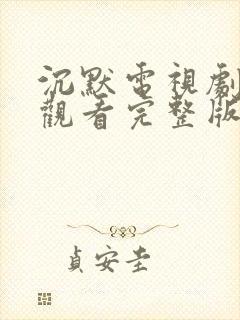 沉默電視劇
觀看完整版
貞安圭